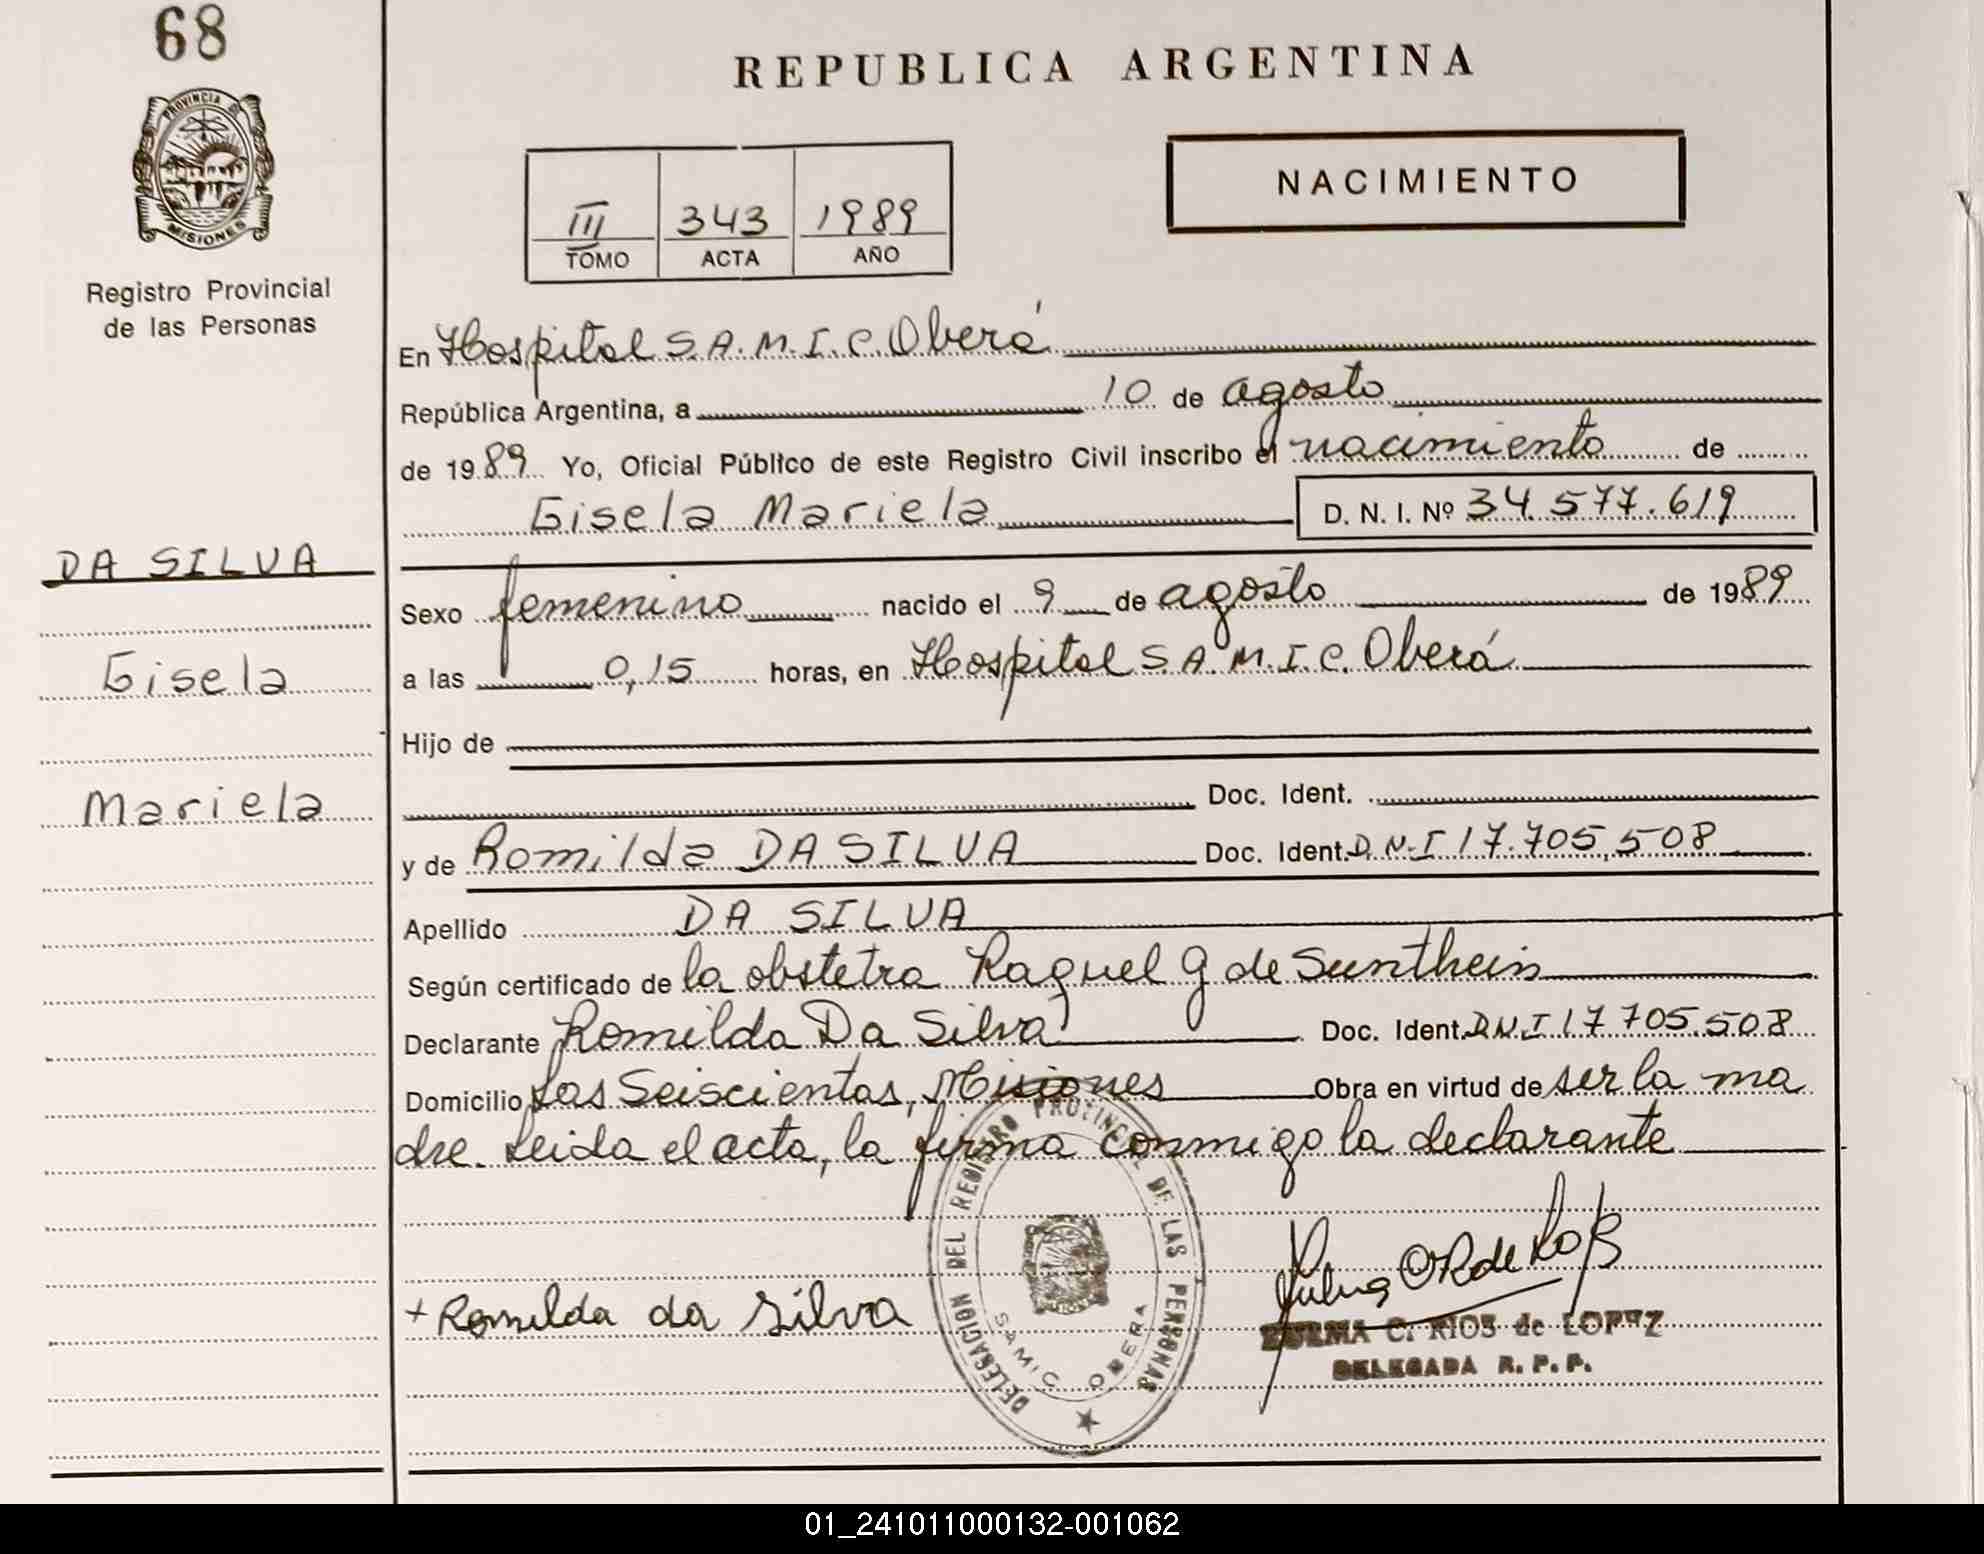 68
REPUBLICA ARGENTINA
PROVINCIA DE
MISIONES
NACIMIENTO
III 343 1989
TOMO ACTA AÑO
Registro Provincial
de las Personas
En Hospital S.A.M.I.C. Oberá
República Argentina, a 10 de agosto
de 1989 Yo, Oficial Público de este Registro Civil inscribo el nacimiento de
Gisela Mariela D. N. I. Nº 34.577.619
DA SILVA
Sexo femenino nacido el 9 de agosto de 1989
Gisela
a las 0,15 horas, en Hospital S.A.M.I.C. Oberá
Hijo de
Mariela
Doc. Ident.
y de Romilda DA SILVA Doc. Ident. D.N.I 17.705.508
Apellido DA SILVA
Según certificado de la obstetra Raquel G de Sunthein
Declarante Romilda Da Silva Doc. Ident. D.N.I 17 705.508
Domicilio Las Seiscientas, Misiones Obra en virtud de ser la ma
dre. Leida el acta, la firma conmigo la declarante
DELEGACION DEL REGISTRO PROVINCIAL DE LAS PERSONAS
SAMIC OBERA
+ Romilda da Silva
ZULMA C. RIOS de LOPEZ
DELEGADA R. P. P.
01_241011000132-001062